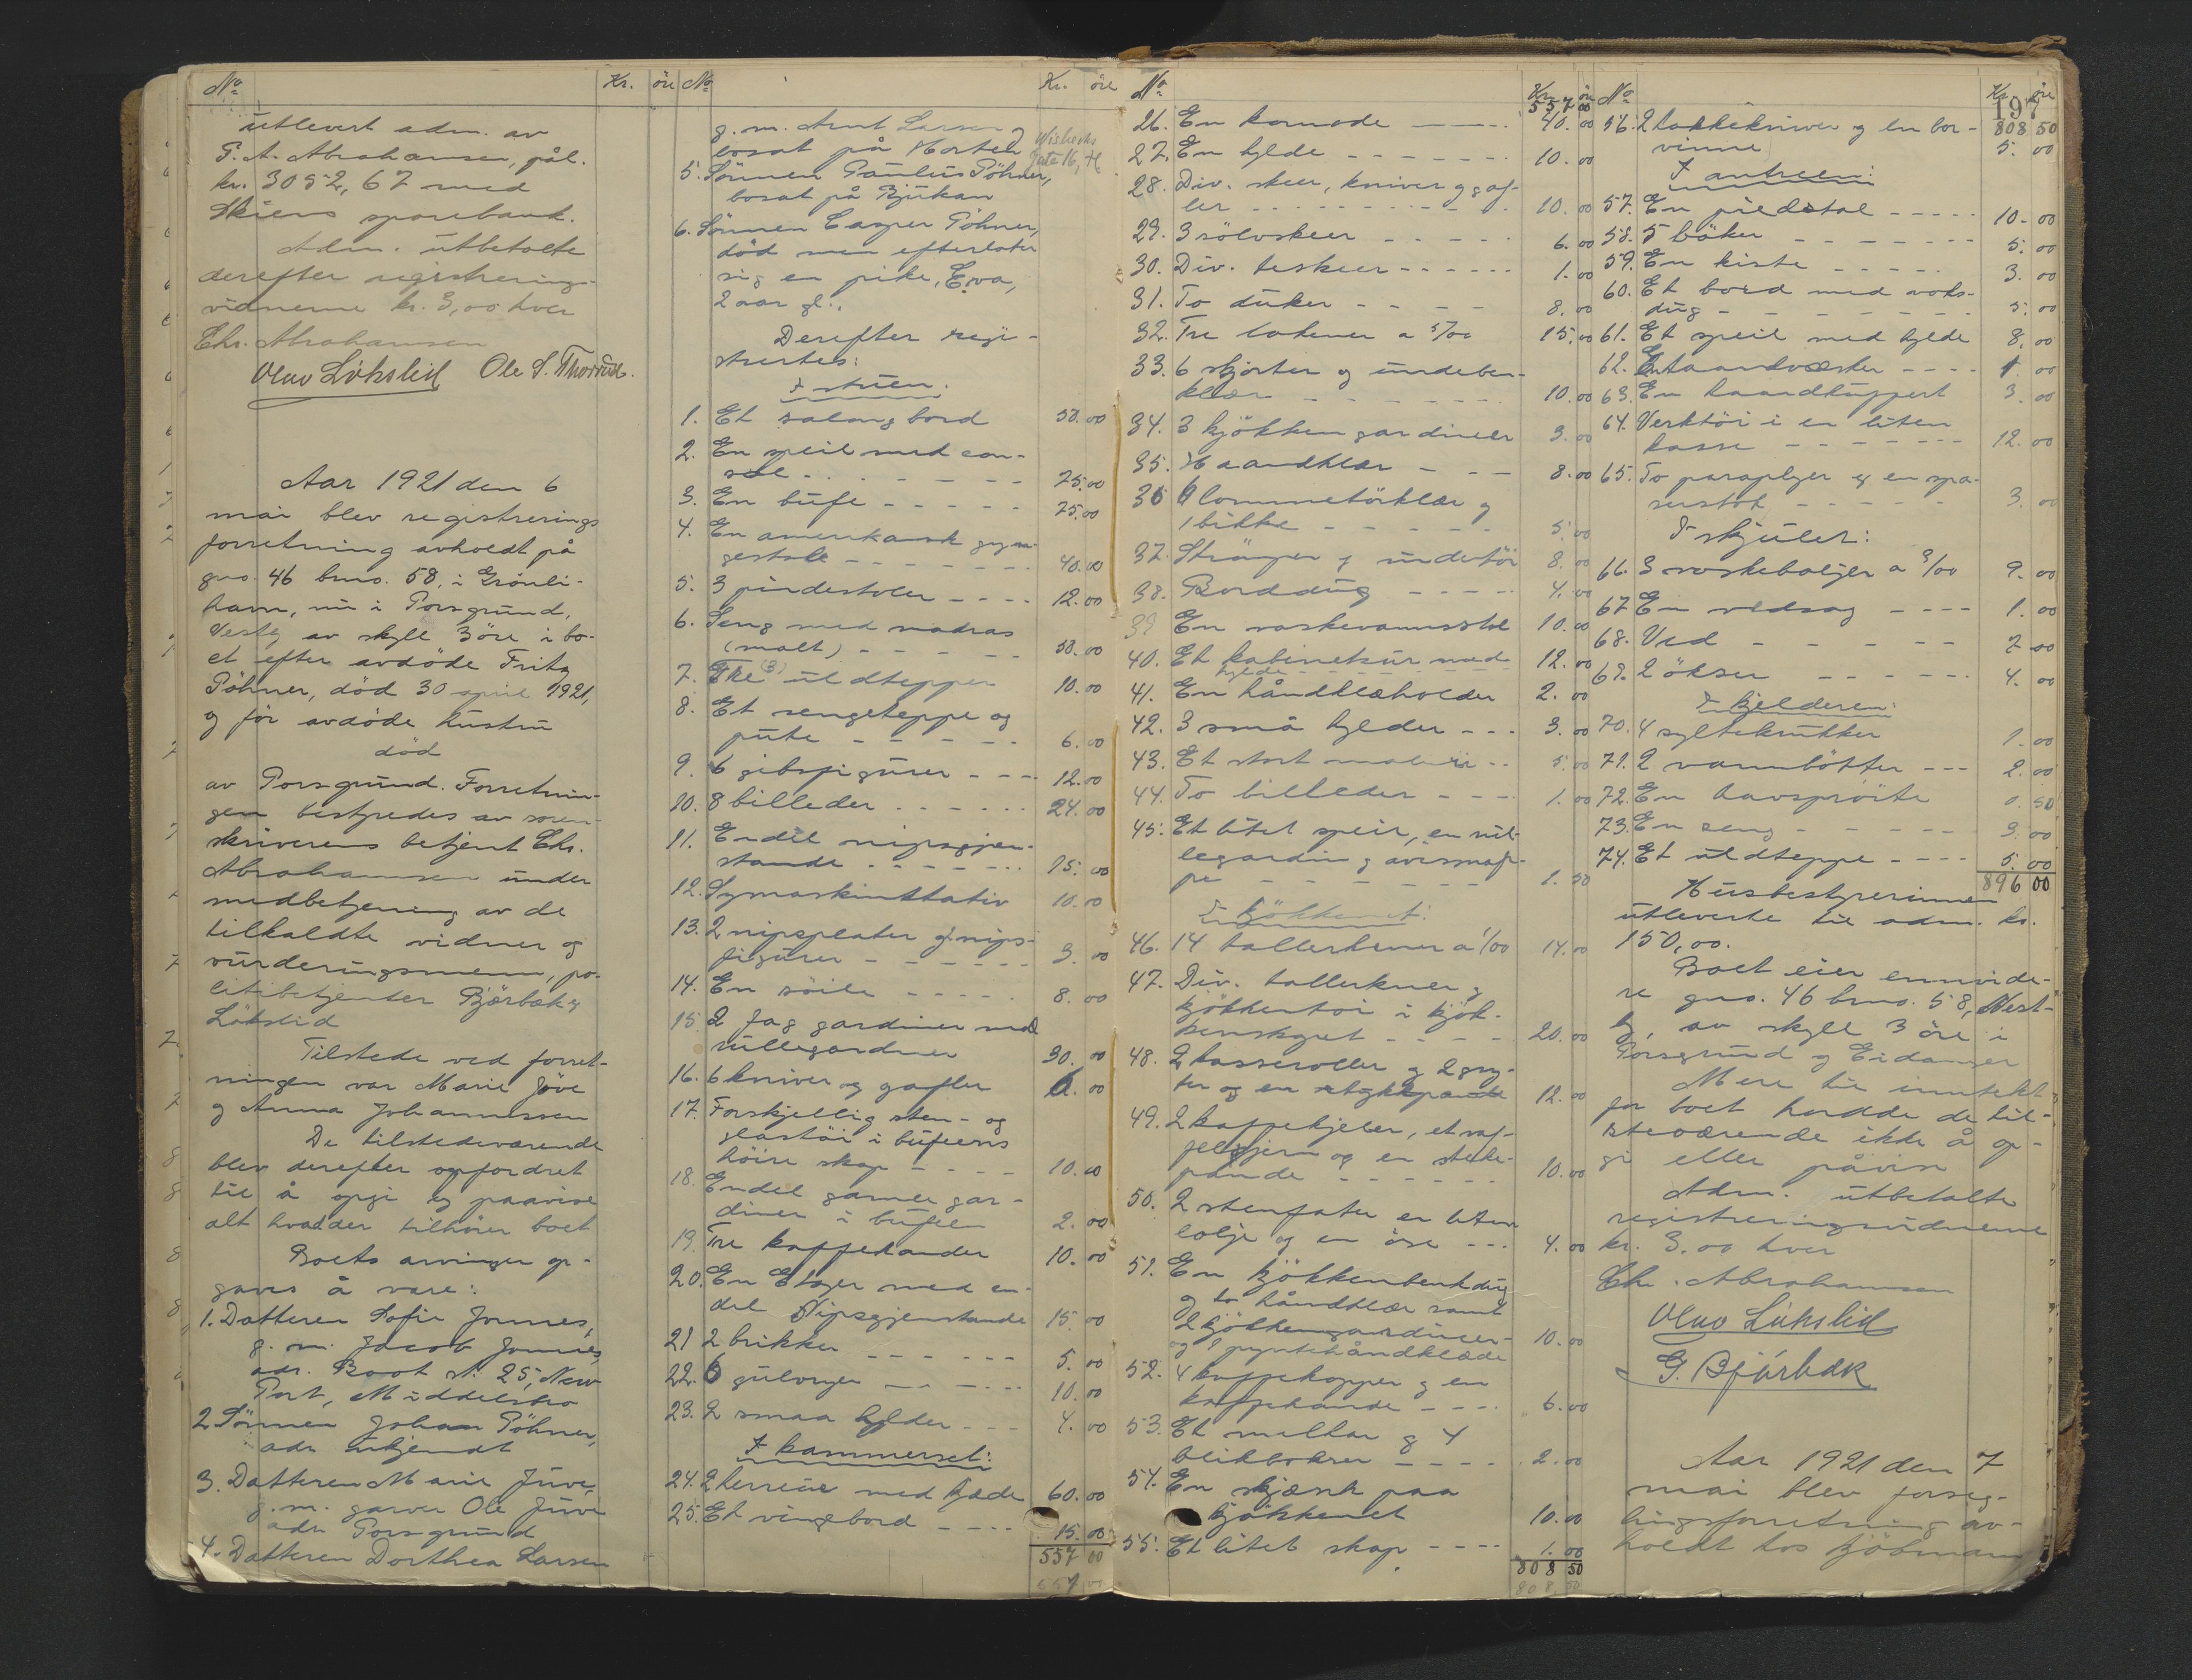 No Kr. öre
utlevert adm. av
P. A. Abrahamsen, pål.
kr. 3052,67 med
Skiens sparebank.
Adm. utbetalte
derefter registrerings-
vidnerne kr. 3,00 hver
Chr. Abrahamsen
Olav Lökslid Ole S. Thorrud.
Aar 1921 den 6
mai blev registrerings
forretning avholdt på
gno. 46 bno. 58, i Grönli-
havn, nu i Porsgrund,
Vestg av skyll 3 öre i bo-
et efter avdöde Fritz
Pöhner, död 30 april 1921,
og för avdöde hustru
död
av Porsgrund. Forretnin-
gen bestyredes av soren-
skriverens betjent Chr.
Abrahamsen under
medbetjening av de
tilkaldte vidner og
vurderingsmenn, po-
litibetjenter Bjørbæk og
Lökslid
Tilstede ved forret-
ningen var Marie Jöve
og Anna Johannessen
De tilstedeværende
blev derefter opfordret
til å opgi og paavise
alt hvad der tilhører boet
Boets arvinger op-
gaves å være:
1. Datteren Sofie Jonnes,
g. m. Jacob Jonnes,
adr. Boot St. 25, New
Port, Middelsbo
2. Sönnen Johan Pöhner,
adr. ukjendt
3. Datteren Marie Juve,
g. m. garver Ole Juve
adr. Porsgrund
4. Datteren Dorthea Larsen
No Kr. öre
g. m. Arnt Larsen
bosat på Horten
gate 16, H
5. Sönnen Paulus Pöhner,
bosat på Rjukan
6. Sönnen Casper Pöhner,
död men efterlater
sig en pike, Eva,
2 aar gl.
Derefter regi-
strertes:
I stuen:
1. Et salongbord 50.00
2. En speil med con-
sol 25.00
3. En bufe 25.00
4. En amerikansk gyn-
gestole 40.00
5. 3 pindestoler 12.00
6. Seng med madras
(malt) 50.00
7. Tre (3) uldtepper 10.00
8. Et sengeteppe og
pute 6.00
9. 6 gibsfigurer 12.00
10. 8 billeder 24.00
11. Endel nipsgjen-
stande 15.00
12. Symaskinstativ 10.00
13. 2 nipsplater og nips-
figurer 3.00
14. En söile 8.00
15. 2 fag gardiner med
rullegardiner 30.00
16. 6 kniver og gafler 6.00
17. Forskjellig sten- og
glastöi i bufeens
höire skap 10.00
18. Endel gamle gar-
diner i bufeen 2.00
19. Tre kaffekander 10.00
20. En Etager med en-
del Nipsgjenstande 15.00
21 2 brikker 5.00
22. 6 gulvryer 10.00
23. 2 smaa hylder 4.00
I kammerset:
24. 2 herreur med kjede 60.00
25. Et vingebord 15.00
557 00
557,00
No Kr. öre
557 00
26. En komode 40.00
27. En hylde 10.00
28. Div. skeer, kniver og gaf-
ler 10.00
29. 3 sölvskeer 6.00
30. Div. teskeer 1.00
31. To duker 8.00
32. Tre lakener a 5/00 15.00
33. 6 skjorter og underben-
klær 10.00
34. 3 kjökkengardiner 3.00
35. Haandklær 8.00
36 6 lommetörklær og
1 bikke 5.00
37. Strömper og undertöi 8.00
38. Borddug 4.00
39 En vaskevannstol 10.00
40. Et kabinetsur med
hylde 12.00
41. En håndklæholder 2.00
42. 3 små hylder 3.00
43. Et stort maleri 5.00
44. To billeder 1.00
45. Et litet speil, en rul-
legardin og avismap-
pe 1.50
I kjökkenet:
46. 14 tallerkener a 1/00 14.00
47. Div. tallerkner og
kjökkentöi i kjök-
kenskapet 20.00
48. 2 kasseroller og 2 gry-
ter og en stykkpande 12.00
49. 2 kaffekjeler, et vaf-
feljern og en steke-
pande 10.00
50. 2 stenfater en liten
bolje og en öse 4.00
51. En kjökkenbenkdug
og to håndklær samt
2 kjökkengardiner
og 1 pyntehåndklæde 10.00
52. 4 kaffekopper og en
kaffekande 6.00
53. Et melkar og 4
blikbokser 2.00
54. En skjænk paa
kjökkenet 10.00
55. Et litet skap 1.00
808 50
808,50
No Kr. öre
197
808 50
56. 2 hakkekniver og en bor-
vinne 5.00
I antreen:
57. En piedestal 10.00
58. 5 böker 5.00
59. En kiste 3.00
60. Et bord med voks-
dug 5.00
61. Et speil med hylde 8.00
62. En haandvæske 1.00
63. En haandkuffert 3.00
64. Verktöi i en liten
kasse 12.00
65. To paraplyer og en spa-
serstok 3.00
I skjulet:
66. 3 vaskebaljer a 3/00 9.00
67 En vedsag 1.00
68. Ved 7.00
69. 2 ökser 4.00
I kjelderen:
70. 4 syltekrukker 1.00
71. 2 vannbötter 2.00
72. En havsprøite 0.50
73. En seng 3.00
74. Et uldteppe 5.00
896 00
Husbestyrerinnen
utleverte til adm. kr.
150,00.
Boet eier ennvide-
re gno. 46 bno. 58, Vest-
g, av skyll 3 öre i
Porsgrund og Eidanger
Mere til inntekt
for boet hadde de til-
steværende ikke å op-
gi eller påvise
Adm. utbetalte
registreringsvidnerne
kr. 3.00 hver
Chr. Abrahamsen
Olav Lökslid
G. Bjørbæk
Aar 1921 den 7
mai blev forseg-
lingsforretning av-
holdt hos kjöbmann